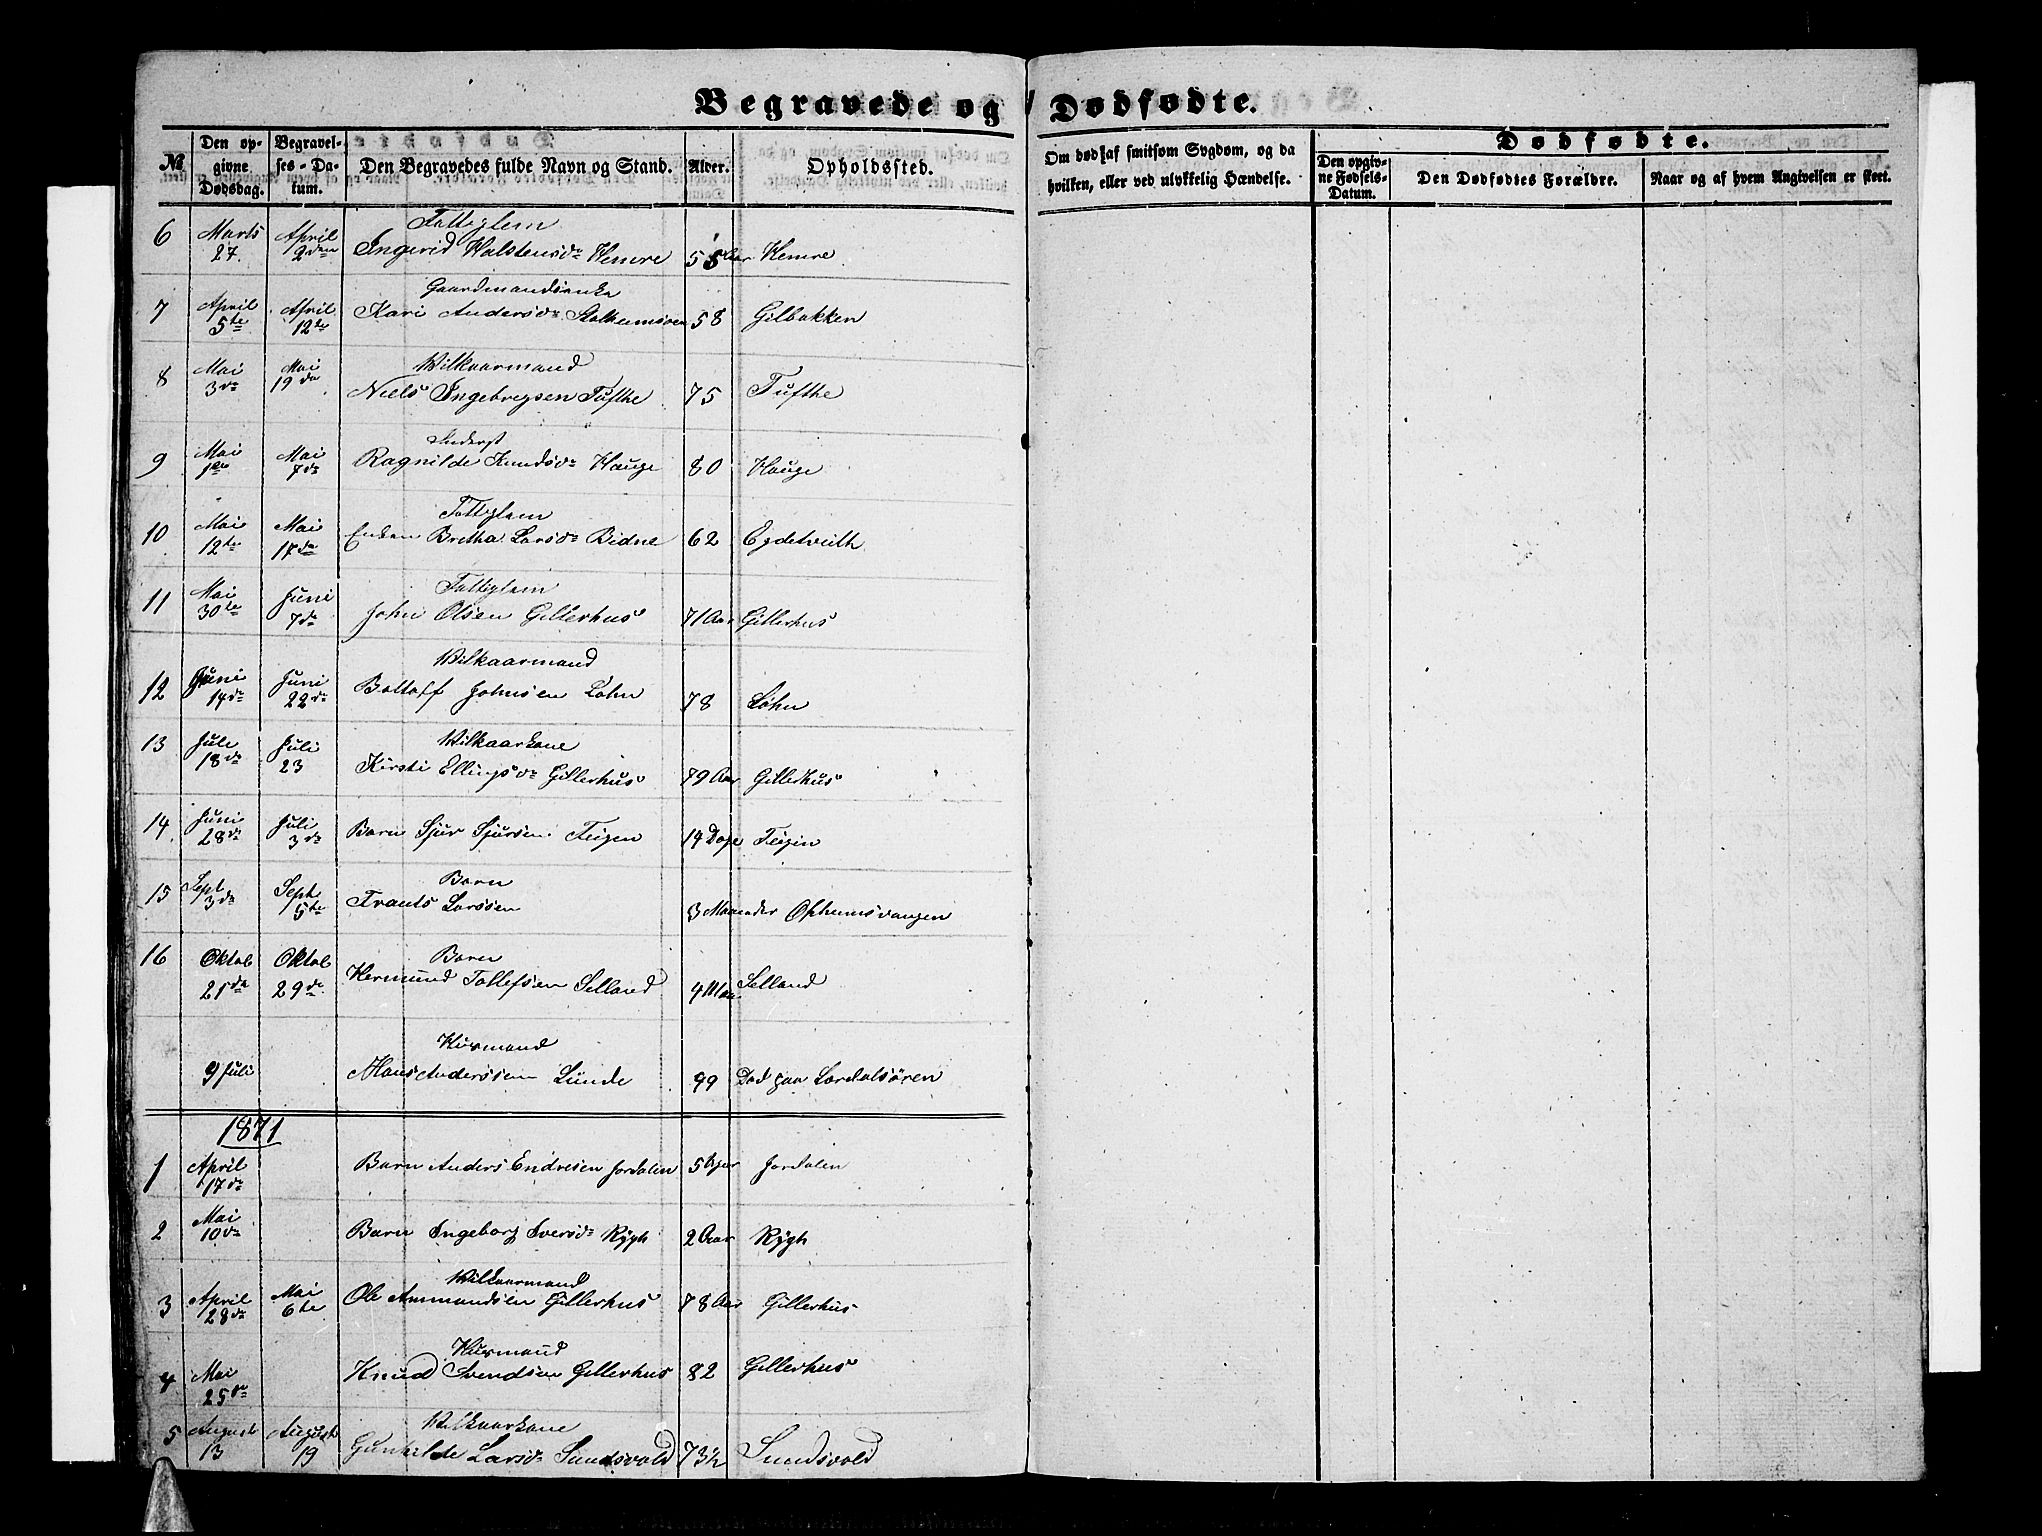 Begravede og Dødfødte.
No. Den opgivne Dødsdag. Begravelses-Datum. Den Begravedes fulde Navn og Stand. Alder. Opholdssted. Om død af smitsom Sygdom, og da hvilken, eller ved ulykkelig Hændelse. Dødfødte. Den opgivne Fødsels-Datum. Den Dødfødtes Forældre. Naar og af hvem Angivelsen er skeet.
Fattiglem
6 Marts 27. April 2den Ingerid Halstensdr Hemre 55 Aar Hemre
Gaardmandsenke
7 April 5te April 12te Kari Andersdr 58 Gilbakken
Wilkaarmand
8 Mai 3die Mai 19de Niels Ingebregsen Tufthe 75 Tufthe
Inderst
9 Mai 1ste Mai 7de Ragnilde Knudsdr Hauge 80 Hauge
Fattiglem
10 Mai 12te Mai 17de Enken Bretha Larsdr Bidne 62 Egdetveith
Fattiglem
11 Mai 30te Juni 7de John Olsen Gillerhus 71 Aar Gillerhus
Wilkaarmand
12 Juni 14de Juni 22de Bottolf Johnsen Løhn 78 Løhn
Wilkaarkone
13 Juli 18de Juli 23 Kirsti Ellingsdr Gillerhus 79 Aar Gillerhus
14 Juni 28de Juli 3die Barn Sjur Sjursen Teigen 14 Dage Teigen
Barn
15 Sept 3die Septr 5te Frants Larssen 3 Maaneder Opheimsvangen
Barn
16 Oktob 21de Oktob 29de Hermund Tollefsen Selland 4 Maa Selland
Husmand
9 Juli Hans Anderssen Lunde 99 Død paa Lærdalsøren
1871
1 April 17de Barn Anders Endresen Jordalen 5 Uger Jordalen
2 Mai 10de Barn Ingeborg Iversdr Rygh 2 Aar Rygh
Wilkaarmand
3 April 28de Mai 6te Ole Ammundsen Gillerhus 78 Aar Gillerhus
Husmand
4 Mai 25de Knud Svendsen Gillerhus 82 Gillerhus
Wilkaarkone
5 August 13 August 19 Gunhilde Larsdr Sundsvold 73½ Sundsvold